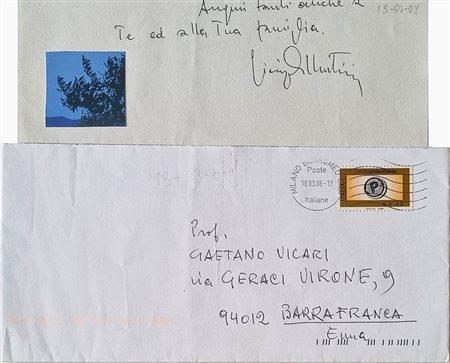 Auguri tanti anche a
19-03-08
Te ed alla Tua famiglia.
19-03-08
MILANO BORROMEO
Poste
18.03.08-17
Italiane
P
Prof.
GAETANO VICARI
via GERACI VIRONE, 9
94012 BARRAFRANCA
Enna